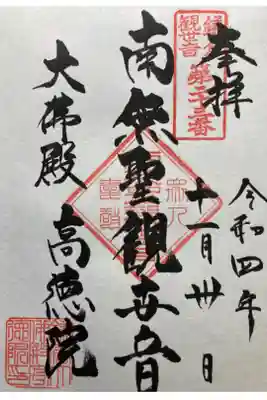 奉拝
令和四年
十一月卅日
鎌倉
観世音
第廿三番
南無聖観世音
大佛殿 高徳院